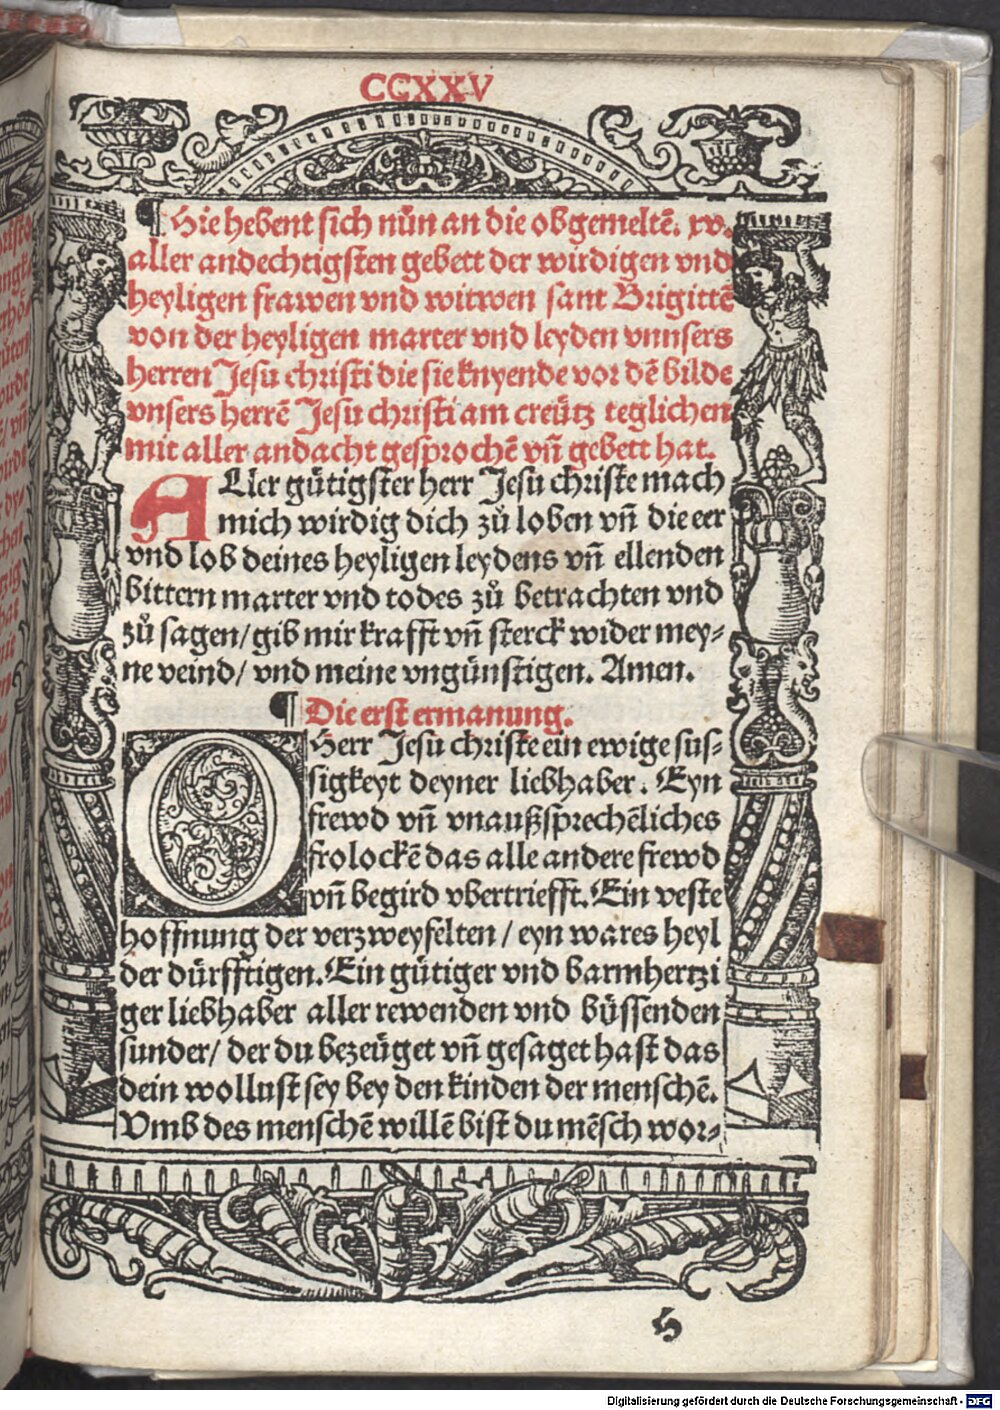 CCXXV
¶ Hie hebent sich nün an die obgemeltē. xv.
aller andechtigsten gebett der wirdigen vnd
heyligen frawen vnd witwen sant Brigittē
von der heyligen marter vnd leyden vnnsers
herren Jesu christi die sie knyende vor dē bilde
vnsers herrē Jesu christi am creütz teglichen
mit aller andacht gesprochē vn̄ gebett hat.
ALler gütigster herr Jesu christe mach
mich wirdig dich zů loben vn̄ die eer
vnd lob deines heyligen leydens vn̄ ellenden
bittern marter vnd todes zů betrachten vnd
zů sagen/ gib mir krafft vn̄ sterck wider mey⸗
ne veind/ vnd meine vngünstigen. Amen.
¶ Die erst ermanung.
O Herr Jesu christe ein ewige sus⸗
sigkeyt deyner liebhaber. Eyn
frewd vn̄ vnaußsprechēliches
frolockē das alle andere frewd
vn̄ begird vbertriefft. Ein veste
hoffnung der verzweyfelten / eyn wares heyl
der dürfftigen. Ein gütiger vnd barmhertzi
ger liebhaber aller rewenden vnd büssenden
sunder/ der du bezeüget vn̄ gesaget hast das
dein wollust sey bey den kinden der menschē.
Vmb des menschē willē bist du mēsch wor⸗
H
Digitalisierung gefördert durch die Deutsche Forschungsgemeinschaft - DFG